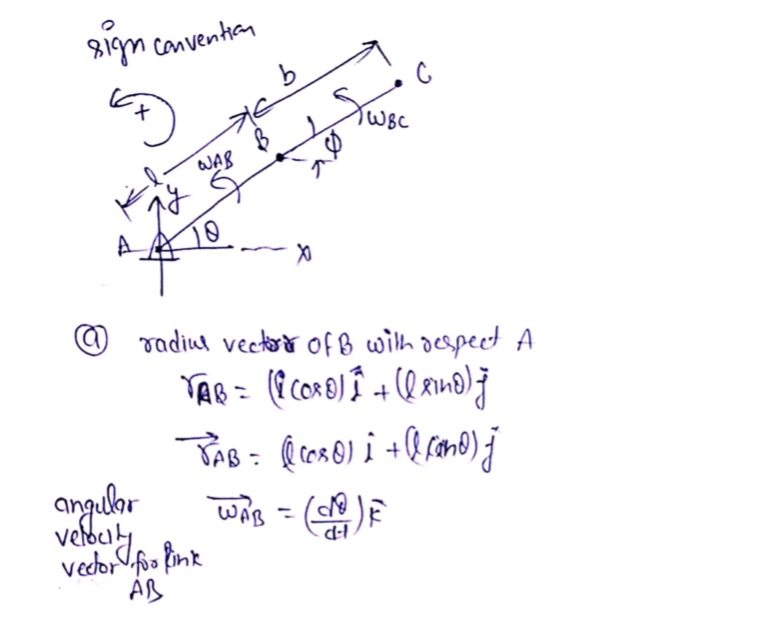 sign convention
+
b
C
B
ωBC
ϕ
ωAB
l
y
A
θ
x
ⓐ radius vector of B with respect A
rAB = (l cosθ) i⃗ + (l sinθ) j⃗
r⃗AB = (l cosθ) i + (l sinθ) j⃗
angular velocity vector for link AB
ω⃗AB = (dθ/dt) k⃗